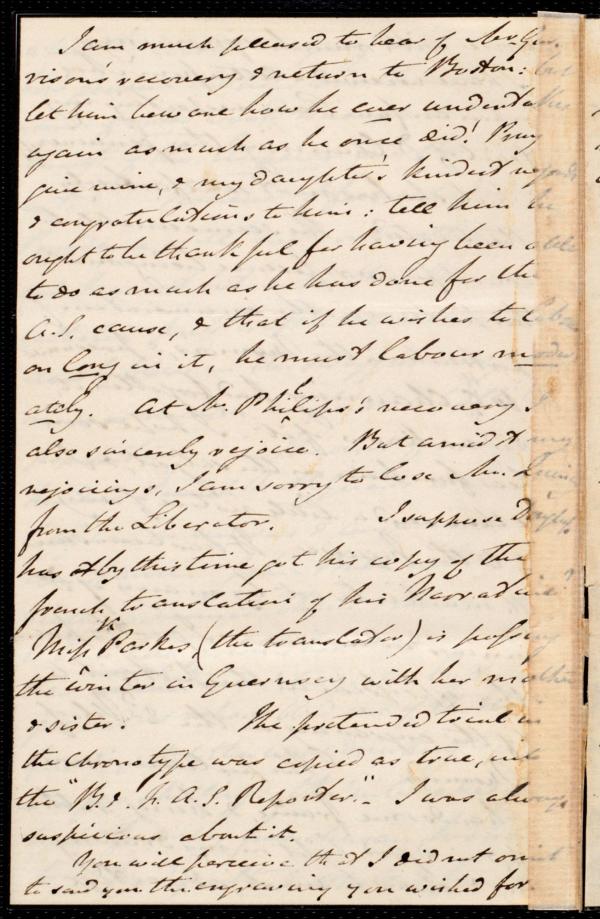 I am much pleased to hear of Mr. Gar-
rison's recovery & return to Boston: but
let him beware how he ever undertakes
again as much as he once did! Pray
give mine, & my daughter's kindest regards
& congratulations to him: tell him he
ought to be thankful for having been able
to do as much as he has done for the
A.S. cause, & that if he wishes to labour
on long in it, he must labour moder
ately. At Mr. Philips's recovery I
also sincerely rejoice. But amidst my
rejoicings, I am sorry to lose Mr. Quincy
from the Liberator. I suppose Douglass
has by this time got his copy of the
french translation of his Narrative?
Miss Parkes, (the translator) is passing
the winter in Guernsey with her mother
& sister. The pretended trial in
the Chronotype was copied as true, into
the "B. & F. A. S. Reporter." - I was always
suspicious about it.
You will perceive that I did not omit
to send you the engraving you wished for